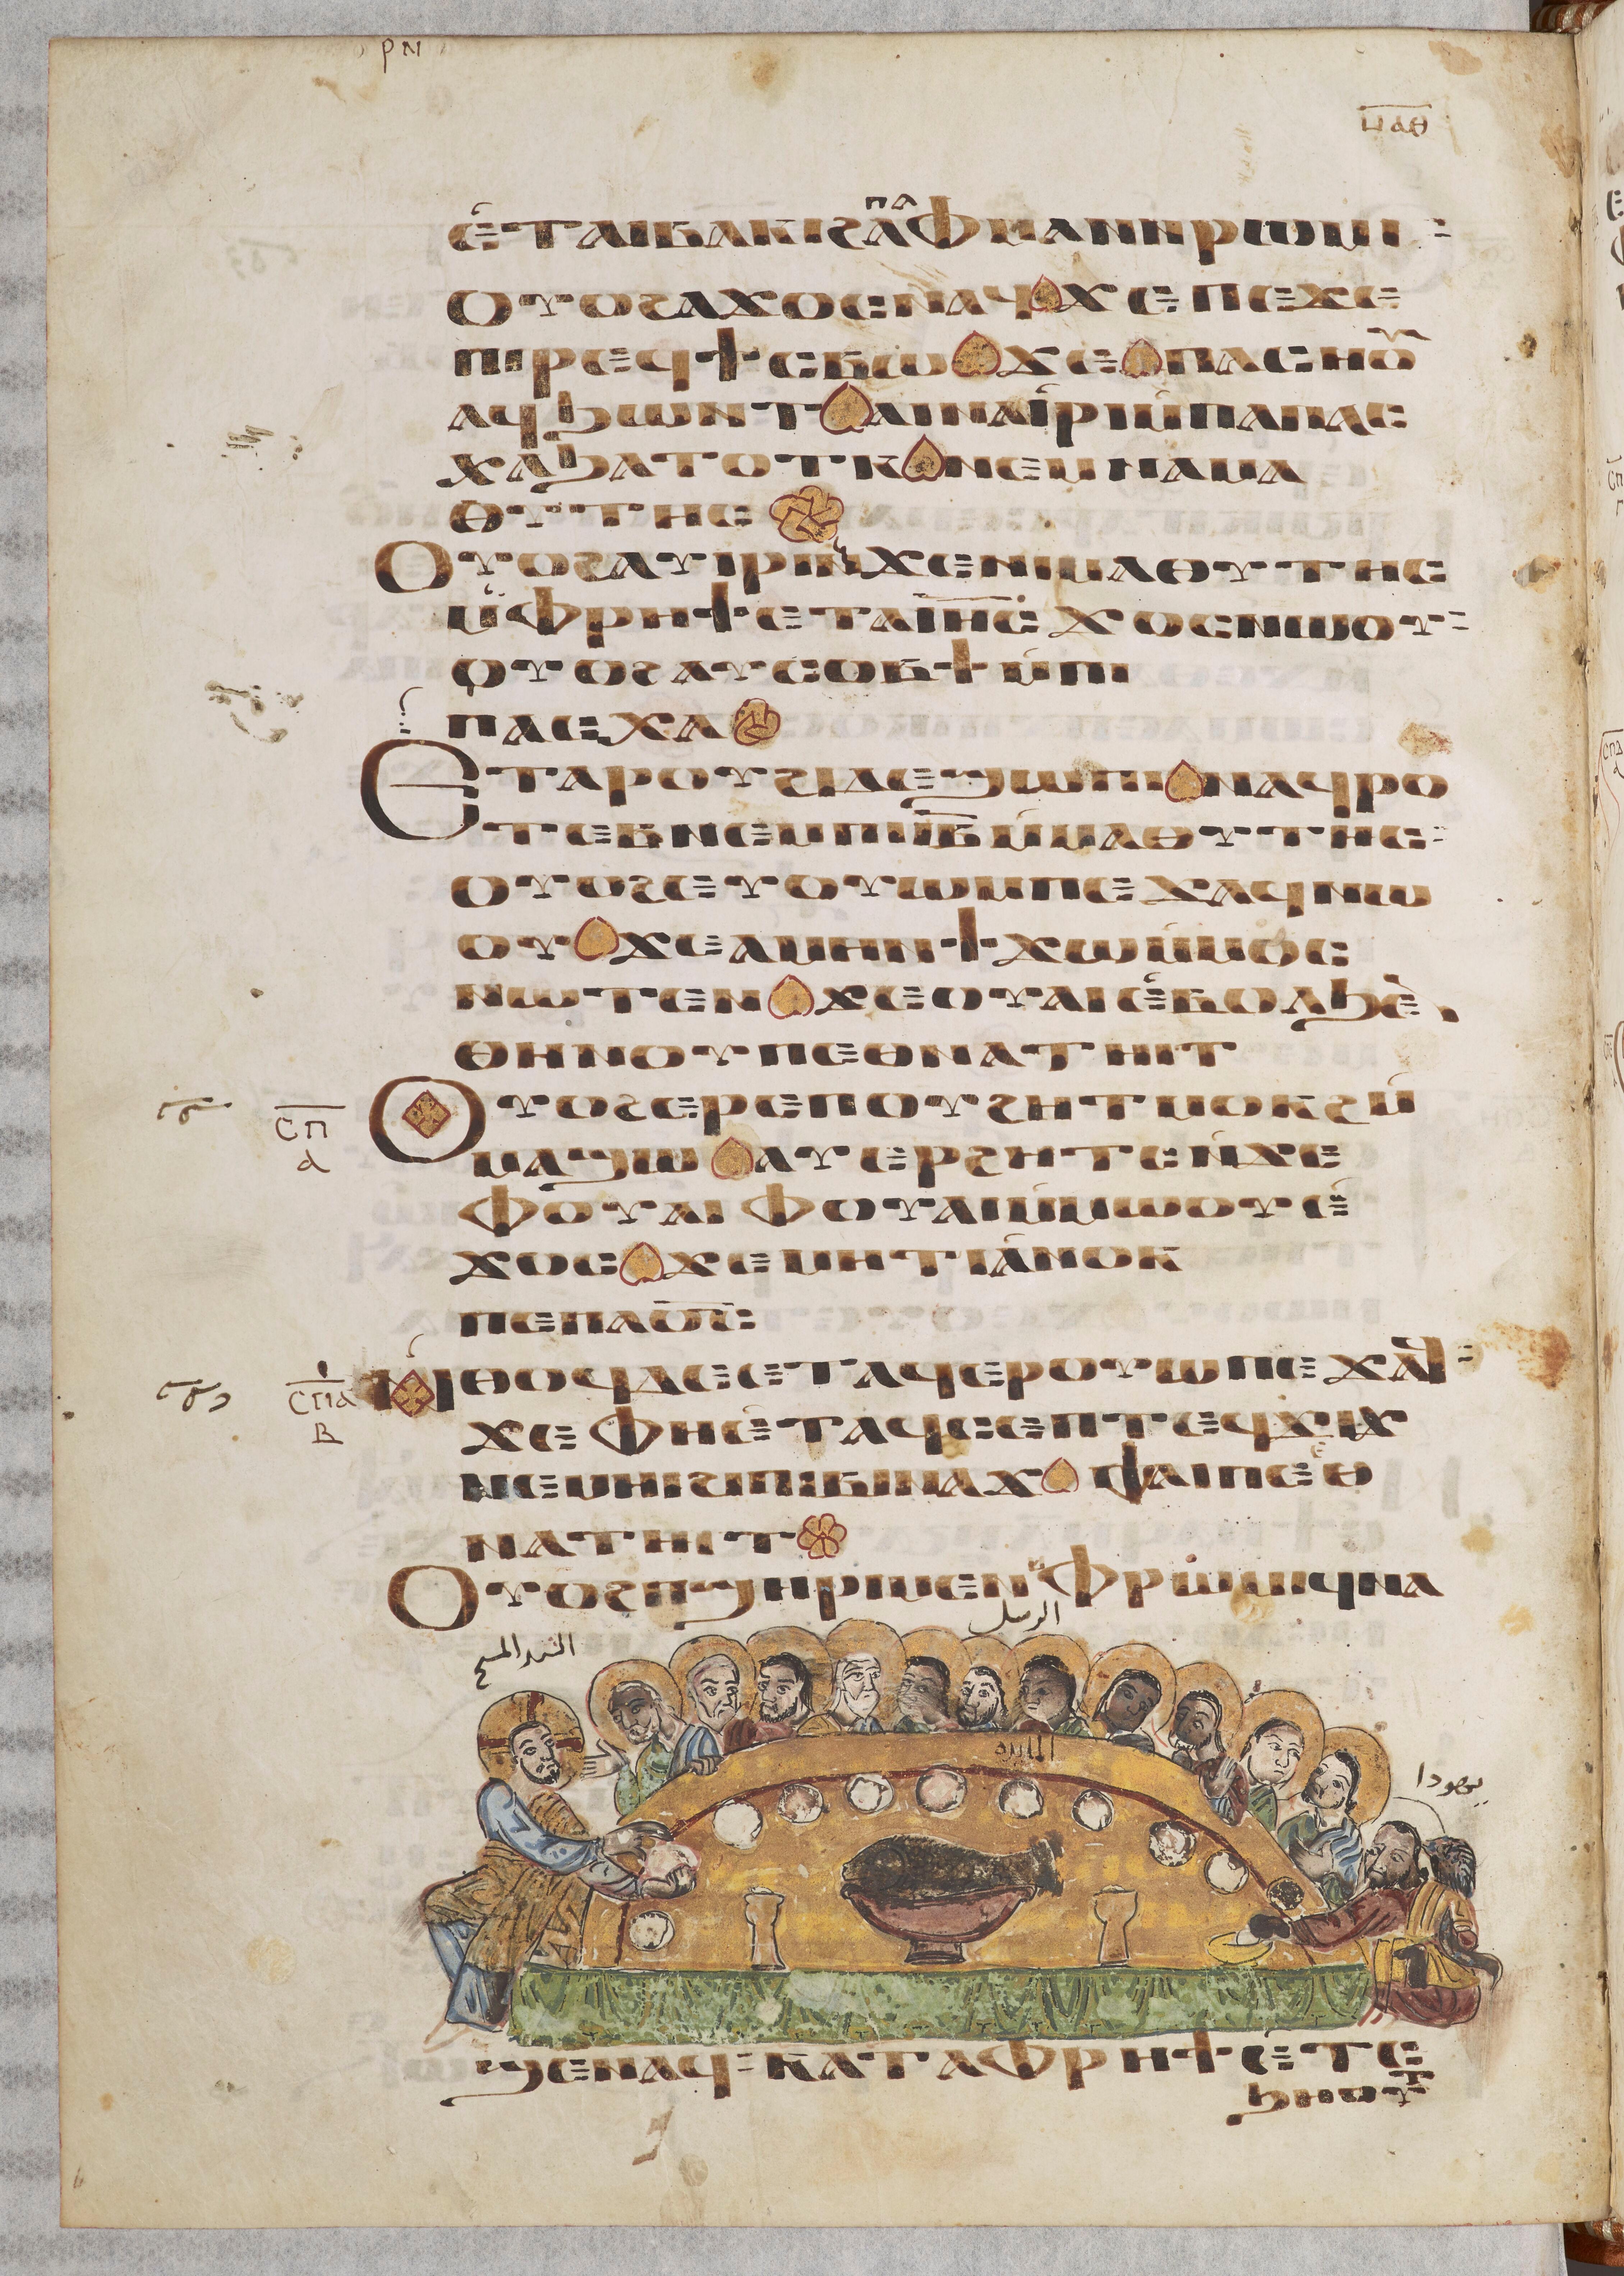 ⲣⲛ
ⲉ̀ⲧⲁⲓⲃⲁⲕⲓϩⲁ ⲡⲁ ⲫⲙⲁⲛⲛⲓⲣⲱⲙⲓ:
ⲟⲩⲟϩⲁϫⲟⲥⲛⲁϥϫⲉⲡⲉϫⲉ
ⲡⲓⲣⲉϥϯⲥⲃⲱϫⲉⲡⲁⲥⲏⲟⲩ
ⲁϥϧⲱⲛⲧⲁⲓⲛⲁⲓ̀ⲣⲓⲙ̀ⲡⲁⲡⲁⲥ
ⲭⲁϧⲁⲧⲟⲧⲕⲛⲉⲙⲛⲁⲙⲁ
ⲑⲩⲧⲏⲥ
ⲟⲩⲟϩⲁⲩⲓⲣⲓⲛ̀ϫⲉⲛⲓⲙⲁⲑⲩⲧⲏⲥ
ⲙ̀ⲫⲣⲏϯⲉⲧⲁⲓⲏ̅ⲥ̅ϫⲟⲥⲛⲱⲟⲩ:
ⲟⲩⲟϩⲁⲩⲥⲟⲃϯⲙ̀ⲡⲓ
ⲡⲁⲥⲭⲁ
ⲉⲧⲁⲣⲟⲩϩⲓⲇⲉϣⲱⲡⲓⲛⲁϥⲣⲟ
ⲧⲉⲃⲛⲉⲙⲡⲓⲓ̅ⲃ̅ⲙ̀ⲙⲁⲑⲩⲧⲏⲥ:
ⲟⲩⲟϩⲉⲩⲟⲩⲱⲙⲡⲉϫⲁϥⲛⲱ
ⲟⲩϫⲉⲁⲙⲏⲛϯϫⲱⲙ̀ⲙⲟⲥ
ⲛⲱⲧⲉⲛϫⲉⲟⲩⲁⲓⲉ̀ⲃⲟⲗϧⲉⲛ
ⲑⲏⲛⲟⲩⲡⲉⲑⲛⲁⲧⲏⲓⲧ
ⲥⲡ
ⲁ
ⲟⲩⲟϩⲉⲣⲉⲡⲟⲩϩⲏⲧⲙⲟⲕϩⲙ̀
ⲙⲁϣⲱⲁⲩⲉⲣϩⲏⲧⲥⲛ̀ϫⲉ
ⲫⲟⲩⲁⲓⲫⲟⲩⲁⲓⲙ̀ⲙⲱⲟⲩⲉ̀
ϫⲟⲥϫⲉⲙⲏⲧⲓⲁ̀ⲛⲟⲕ
ⲡⲉⲡⲁⲟ̅ⲥ̅
ⲥⲡⲁ
ⲃ
ⲛ̀ⲑⲟϥⲇⲉⲉⲧⲁϥⲉⲣⲟⲩⲱⲡⲉϫⲁϥ:
ϫⲉⲫⲏⲉ̀ⲧⲁϥⲥⲉⲡⲧⲉϥϫⲓϫ
ⲛⲉⲙⲏⲓϩⲓⲡⲓⲃⲓⲛⲁϫⲫⲁⲓⲡⲉⲑ
ⲛⲁⲧⲏⲓⲧ
ⲟⲩⲟϩⲡϣⲏⲣⲓⲙⲉⲛⲙ̀ⲫⲣⲱⲙⲓϥⲛⲁ
الرسل
السيد المسيح
المايده
يهودا
ϣⲉⲛⲁϥ:ⲕⲁⲧⲁⲫⲣⲏϯⲉ̀ⲧⲥ
ϧⲏⲟⲩⲧ